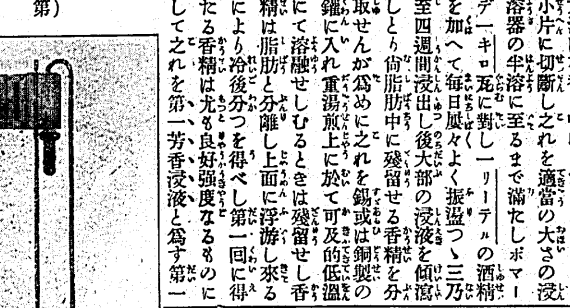 小片に切斷し之れを適當の大さの浸
溶器の半溶に至るまで滿たしポマー
デ一キロ瓦に對し一リーテルの酒精
を加へて每日屢々よく振盪つゝ三乃
至四週間浸出し後大部の浸液を傾瀉
しとり尙脂肪中に殘留せる香精を分
取せんが爲めに之れを錫或は銅製の
鑵に入れ重湯煎上に於て可及的低溫
にて溶融せしむるときは殘留せし香
精は脂肪と分離し上面に浮游し來る
により冷後分つを得べし第一回に得
たる香精は尤も良好强度なるものに
して之れを第一芳香浸液と爲す第一
第)